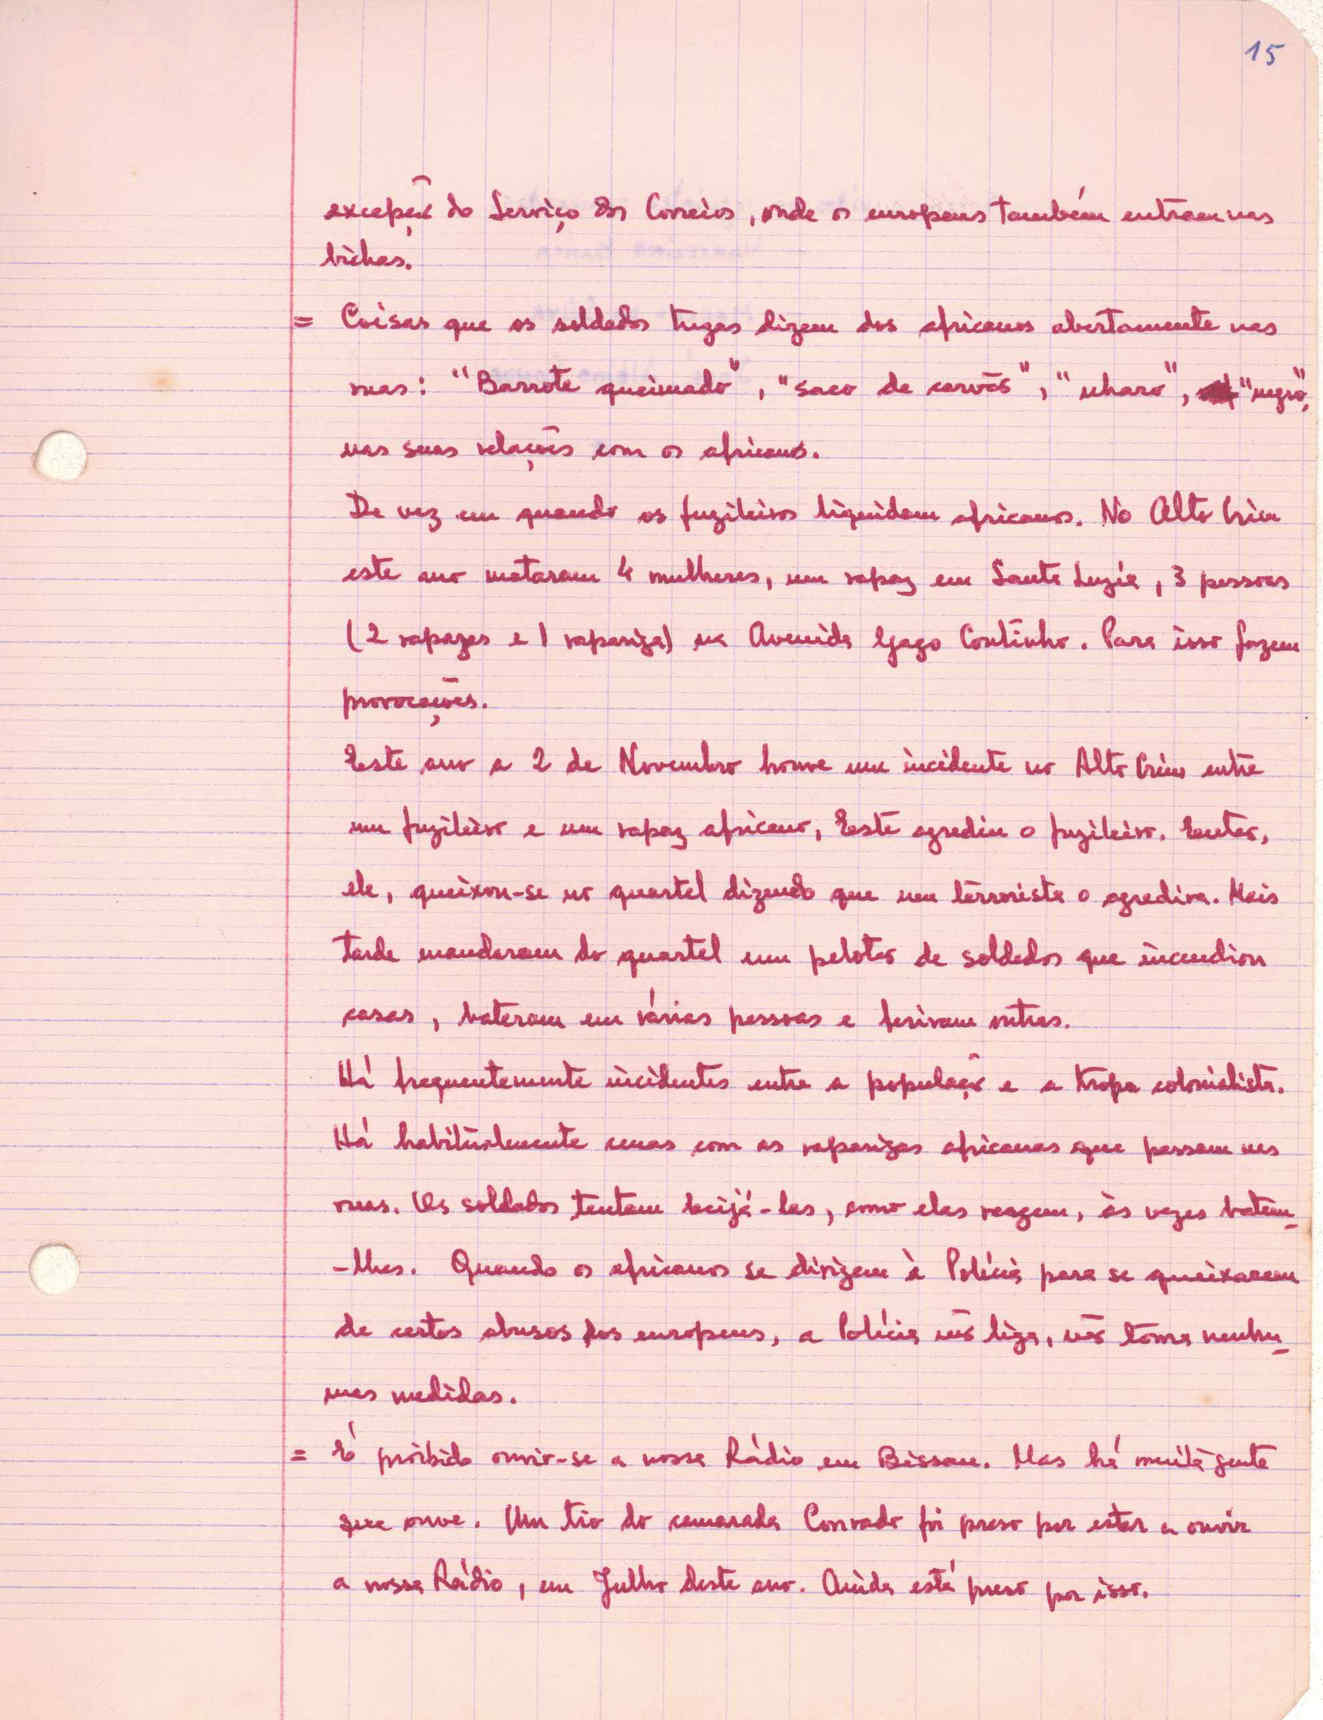 15
excepção do Serviço dos Correios, onde os europeus também entram nas
bichas.
= Coisas que os soldados tugas dizem dos africanos abertamente nas
ruas: "Barrote queimado", "saco de carvão", "nharo", "negro",
nas suas relações com os africanos.
De vez em quando os fuzileiros liquidam africanos. No Alto Crim
este ano mataram 4 mulheres, um rapaz em Santa Luzia, 3 pessoas
(2 rapazes e 1 rapariga) na Avenida Gago Coutinho. Para isso fazem
provocações.
Este ano a 2 de Novembro houve um incidente no Alto Crim entre
um fuzileiro e um rapaz africano, Este agrediu o fuzileiro. Então,
ele, queixou-se no quartel dizendo que um terrorista o agredira. Mais
tarde mandaram do quartel um pelotão de soldados que incendiou
casas, bateram em várias pessoas e feriram outras.
Há frequentemente incidentes entre a população e a tropa colonialista.
Há habitualmente cenas com as raparigas africanas que passam nas
ruas. Os soldados tentam beijá-las, como elas reagem, às vezes batem-
-lhes. Quando os africanos se dirigem à Polícia para se queixarem
de certos abusos dos europeus, a Polícia não liga, não toma nenhu-
mas medidas.
= É proibido ouvir-se a nossa Rádio em Bissau. Mas há muita gente
que ouve. Um tio do camarada Conrado foi preso por estar a ouvir
a nossa Rádio, em Julho deste ano. Ainda está preso por isso.